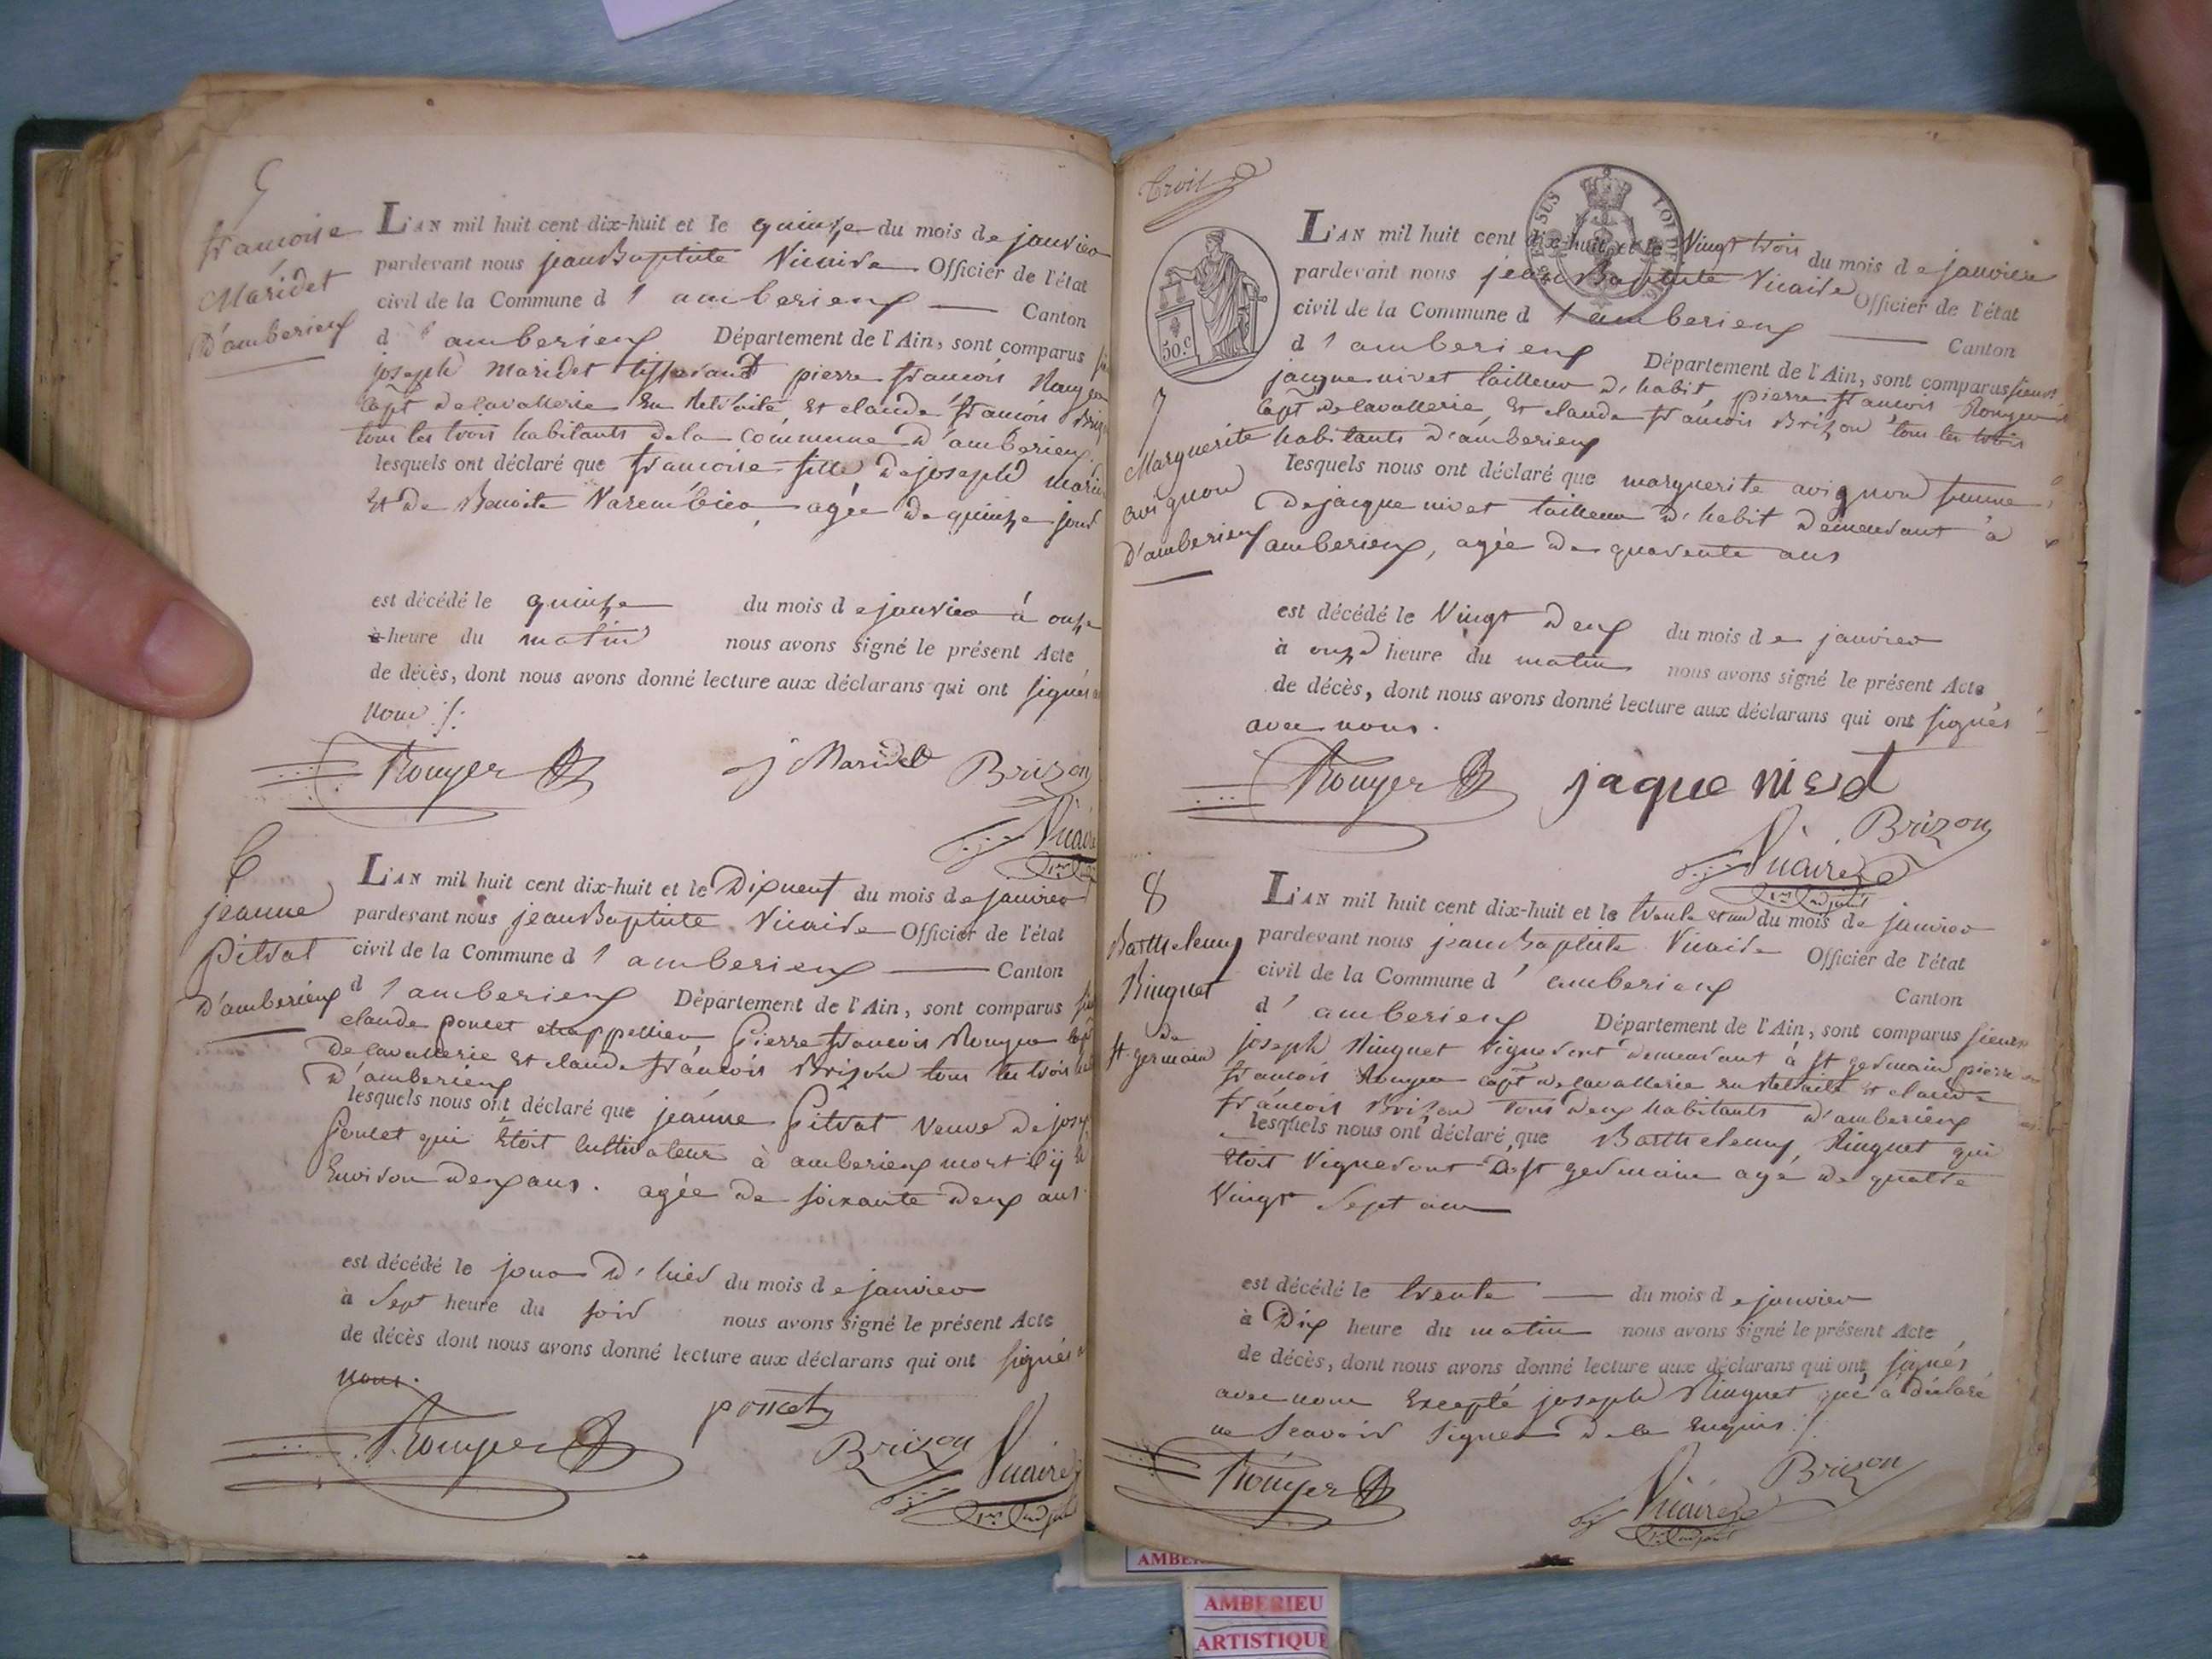 5
francoise
Maridet
D'amberieux
L'AN mil huit cent dix-huit et le quinze du mois de janvier
pardevant nous jean Baptiste Vicaire Officier de l'état
civil de la Commune d'amberieux Canton
d'amberieux Département de l'Ain, sont comparus
joseph Maridet tisserand pierre francois Rouyer
Capt de Cavallerie en Retraite Et claude francois Brizon
tous les trois habitants de la commune d'amberieux
lesquels ont déclaré que francoise fille de joseph
Et de Benoite agée de quinze jours
est décédé le quinze du mois de janvier à onze
à heure du matin nous avons signé le présent Acte
de décès, dont nous avons donné lecture aux déclarans qui ont signés
nous ./.
Rouyer
j Maridet
Brizon
Vicaire
6
jeanne
pitrat
D'amberieux
L'AN mil huit cent dix-huit et le Dixneuf du mois de janvier
pardevant nous jean Baptiste Vicaire Officier de l'état
civil de la Commune d'amberieux Canton
d'amberieux Département de l'Ain, sont comparus
claude poncet chappellier Pierre francois Rouyer Capt
De Cavallerie Et claude francois Brizon tous les trois
D'amberieux
lesquels nous ont déclaré que jeanne Pitrat veuve de
Poncet qui Etoit Cultivateur à amberieux mort il y a
Environ deux ans. agée de soixante deux ans.
est décédé le jour d'hier du mois de janvier
à Sept heure du soir nous avons signé le présent Acte
de décès dont nous avons donné lecture aux déclarans qui ont signés
nous.
Rouyer
poncet
Brizon
Vicaire
1er adjoint
Trois
VERSUS
50.c
7
Marguerite
avignon
D'amberieux
L'AN mil huit cent dix-huit et le Vingt trois du mois de janvier
pardevant nous jean Baptiste Vicaire Officier de l'état
civil de la Commune d'amberieux Canton
d'amberieux Département de l'Ain, sont comparus sieurs
jacque nivet tailleur d'habit, pierre francois Rouyer
Capt de Cavallerie, Et claude francois Brizon tous les trois
habitants d'amberieux
lesquels nous ont déclaré que marguerite avignon femme
De jacque nivet tailleur d'habit demeurant à
amberieux, agée de quarente ans
est décédé le Vingt Deux du mois de janvier
à onze heure du matin nous avons signé le présent Acte
de décès, dont nous avons donné lecture aux déclarans qui ont signés
avec nous.
Rouyer
jaque nivet
Brizon
Vicaire
1er adjoint
8
Barthelemy
Ringuet
de
St germain
L'AN mil huit cent dix-huit et le trente et un du mois de janvier
pardevant nous jean Baptiste Vicaire Officier de l'état
civil de la Commune d'amberieux
Canton
d'amberieux Département de l'Ain, sont comparus sieurs
joseph Ringuet Vigneront demeurant à St germain pierre
francois Rouyer Capt de Cavallerie en Retraite Et claude
francois Brizon tous deux habitants d'amberieux
lesquels nous ont déclaré que Barthelemy Ringuet qui
Etoit Vigneront à St germain agé de quatre
Vingt Sept ans
est décédé le trente du mois de janvier
à Dix heure du matin nous avons signé le présent Acte
de décès, dont nous avons donné lecture aux déclarans qui ont signés
avec nous Excepté joseph Ringuet qui a déclaré
ne Scavoir Signer de ce Enquis ./.
Rouyer
Brizon
Vicaire
1er adjoint
AMBERIEU
ARTISTIQUE